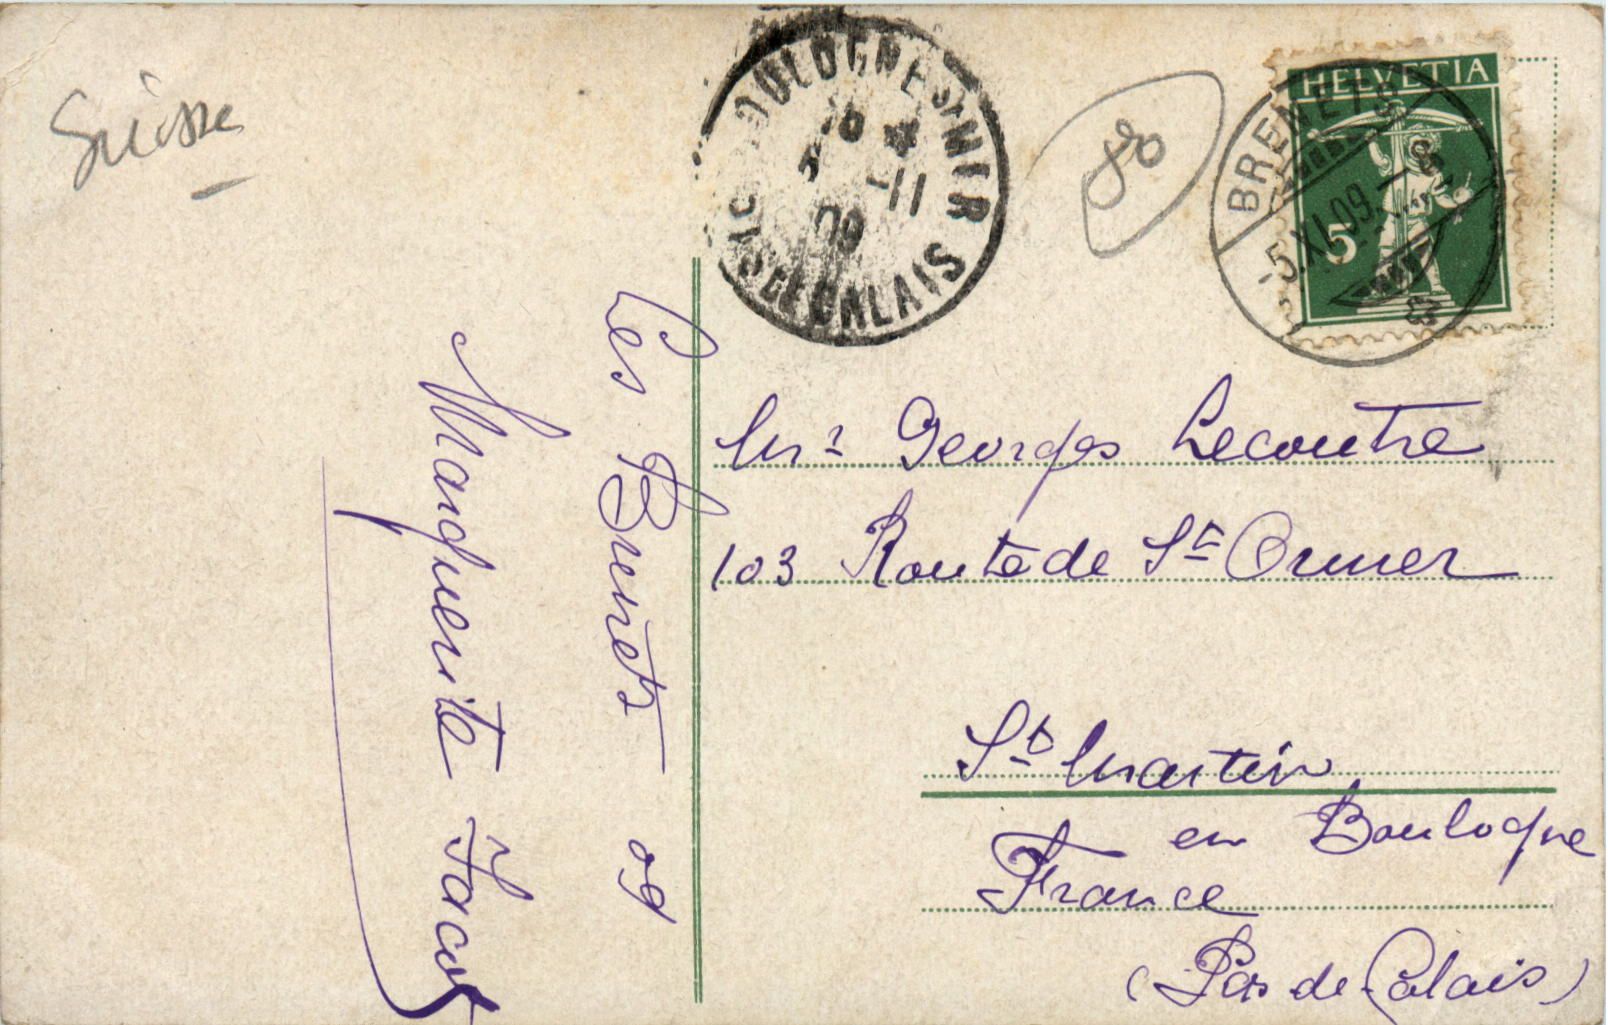 Suisse
BOULOGNE S/ MER
11
09
PAS DE CALAIS
80
HELVETIA
5
BRENETS
5.XI.09.
Les Brenets 09
Marguerite Jacot
Mr Georges Lecoutre
103 Route de St Omer
St Martin
en Boulogne
France
(Pas de Calais)